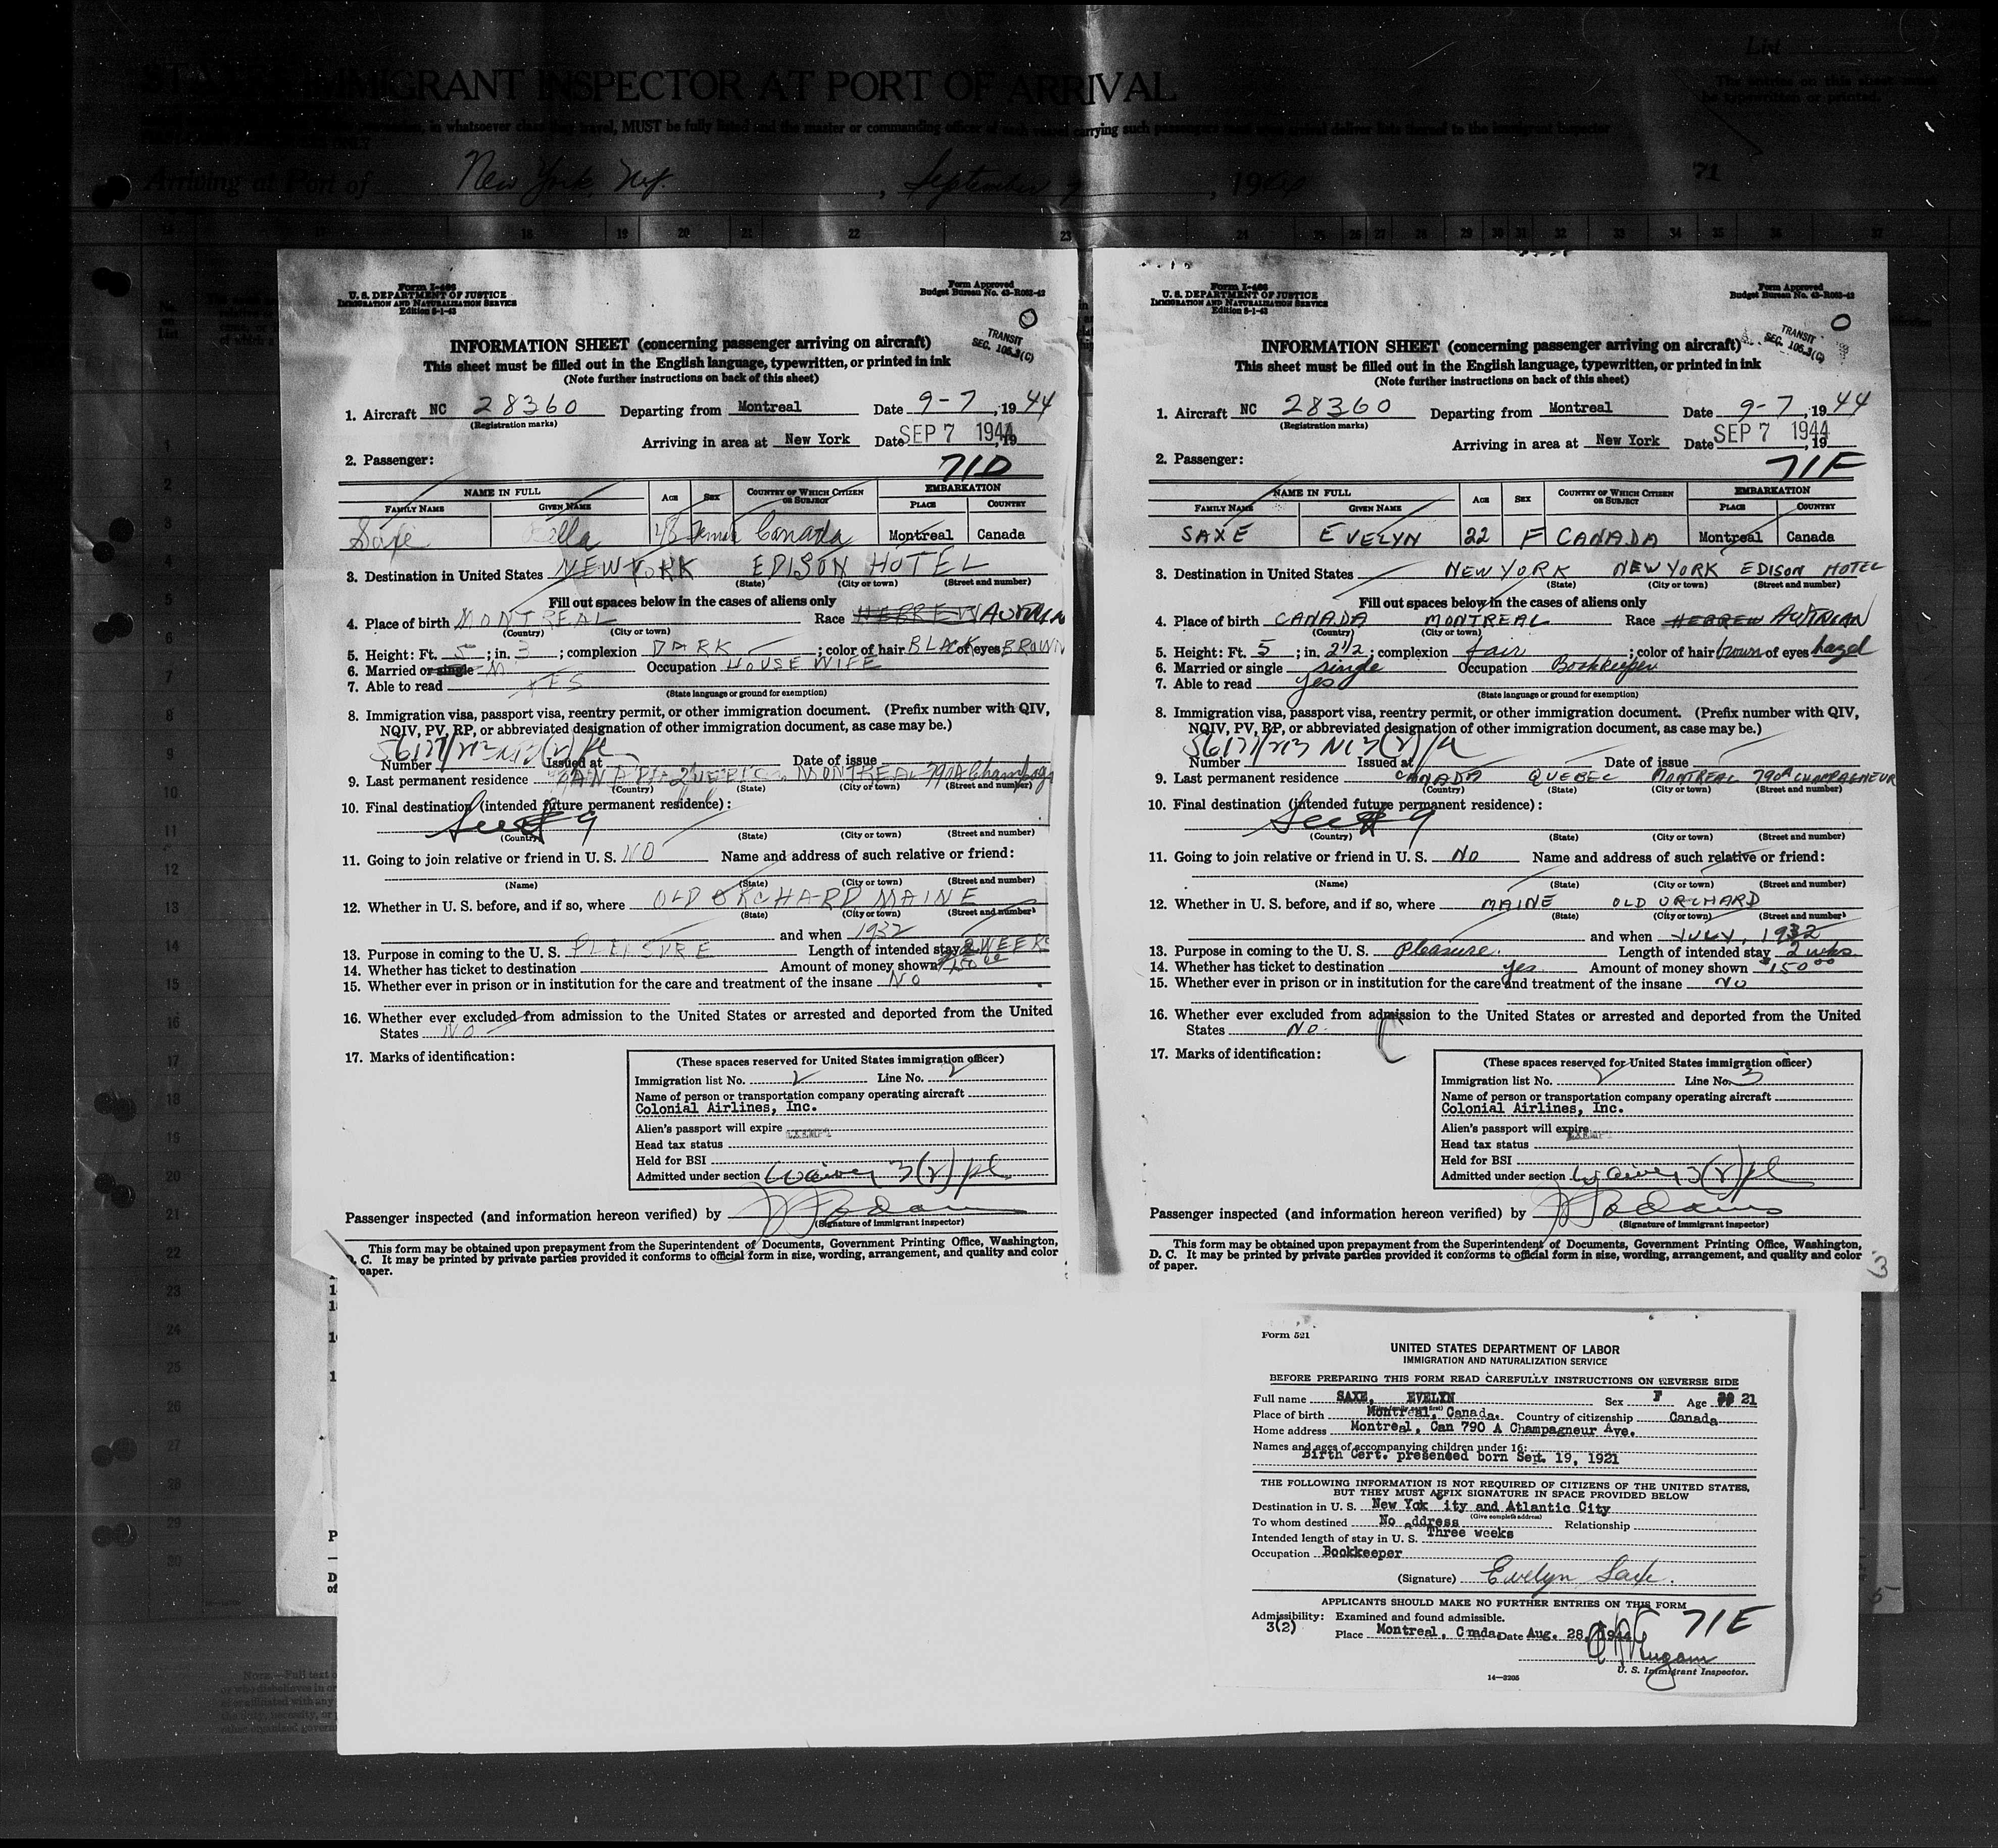 List
The entries on this sheet must
be typewritten or printed.
IMMIGRANT INSPECTOR AT PORT OF ARRIVAL
in whatsoever class they travel, MUST be fully listed and the master or commanding officer of each vessel carrying such passengers must upon arrival deliver lists thereof to the immigrant inspector
Arriving at Port of New York, N.Y. , September , 19
71
17 18 19 20 21 22 23 24 25 26 27 28 29 30 31 32 33 34 35 36 37
Form I-466
U. S. DEPARTMENT OF JUSTICE
IMMIGRATION AND NATURALIZATION SERVICE
Edition 8-1-43
Form Approved
Budget Bureau No. 43-R063-42
O
TRANSIT
SEC. 105.3(C)
INFORMATION SHEET (concerning passenger arriving on aircraft)
This sheet must be filled out in the English language, typewritten, or printed in ink
(Note further instructions on back of this sheet)
1. Aircraft NC 28360 Departing from Montreal Date 9-7, 1944
(Registration marks)
Arriving in area at New York Date SEP 7 1944, 19
2. Passenger: 71D
NAME IN FULL AGE SEX COUNTRY OF WHICH CITIZEN OR SUBJECT EMBARKATION
FAMILY NAME GIVEN NAME PLACE COUNTRY
Saxe Bella 48 Female Canada Montreal Canada
3. Destination in United States NEW YORK EDISON HOTEL
(State) (City or town) (Street and number)
Fill out spaces below in the cases of aliens only
4. Place of birth MONTREAL Race HEBREW AUTRIAN
(Country) (City or town)
5. Height: Ft. 5 ; in. 3 ; complexion DARK ; color of hair BLACK of eyes BROWN
6. Married or single M Occupation HOUSE WIFE
7. Able to read YES
(State language or ground for exemption)
8. Immigration visa, passport visa, reentry permit, or other immigration document. (Prefix number with QIV,
NQIV, PV, RP, or abbreviated designation of other immigration document, as case may be.)
Number Issued at Date of issue
9. Last permanent residence CANADA QUEBEC MONTREAL 790A
(Country) (State) (City or town) (Street and number)
10. Final destination (intended future permanent residence):
See # 9
(Country) (State) (City or town) (Street and number)
11. Going to join relative or friend in U. S. NO Name and address of such relative or friend:
(Name) (State) (City or town) (Street and number)
12. Whether in U. S. before, and if so, where OLD ORCHARD MAINE
(State) (City or town) (Street and number)
and when 1932
13. Purpose in coming to the U. S. PLEISURE Length of intended stay 2 WEEKS
14. Whether has ticket to destination Amount of money shown $150.00
15. Whether ever in prison or in institution for the care and treatment of the insane NO
16. Whether ever excluded from admission to the United States or arrested and deported from the United
States NO
17. Marks of identification:
(These spaces reserved for United States immigration officer)
Immigration list No. 2 Line No. 2
Name of person or transportation company operating aircraft
Colonial Airlines, Inc.
Alien's passport will expire EXEMPT
Head tax status
Held for BSI
Admitted under section Waiver 3(2)/pl
Passenger inspected (and information hereon verified) by
(Signature of immigrant inspector)
This form may be obtained upon prepayment from the Superintendent of Documents, Government Printing Office, Washington,
D. C. It may be printed by private parties provided it conforms to official form in size, wording, arrangement, and quality and color
paper.
Form I-466
U. S. DEPARTMENT OF JUSTICE
IMMIGRATION AND NATURALIZATION SERVICE
Edition 8-1-43
Form Approved
Budget Bureau No. 43-R063-42
O
TRANSIT
SEC. 105.3(C)
INFORMATION SHEET (concerning passenger arriving on aircraft)
This sheet must be filled out in the English language, typewritten, or printed in ink
(Note further instructions on back of this sheet)
1. Aircraft NC 28360 Departing from Montreal Date 9-7, 1944
(Registration marks)
Arriving in area at New York Date SEP 7 1944, 19
2. Passenger: 71F
NAME IN FULL AGE SEX COUNTRY OF WHICH CITIZEN OR SUBJECT EMBARKATION
FAMILY NAME GIVEN NAME PLACE COUNTRY
SAXE EVELYN 22 F CANADA Montreal Canada
3. Destination in United States NEW YORK NEW YORK EDISON HOTEL
(State) (City or town) (Street and number)
Fill out spaces below in the cases of aliens only
4. Place of birth CANADA MONTREAL Race HEBREW AUTRIAN
(Country) (City or town)
5. Height: Ft. 5 ; in. 2 1/2 ; complexion fair ; color of hair brown of eyes hazel
6. Married or single single Occupation Bookkeeper
7. Able to read yes
(State language or ground for exemption)
8. Immigration visa, passport visa, reentry permit, or other immigration document. (Prefix number with QIV,
NQIV, PV, RP, or abbreviated designation of other immigration document, as case may be.)
Number Issued at Date of issue
9. Last permanent residence CANADA QUEBEC MONTREAL 790A CHAMPAGNEUR
(Country) (State) (City or town) (Street and number)
10. Final destination (intended future permanent residence):
See # 9
(Country) (State) (City or town) (Street and number)
11. Going to join relative or friend in U. S. NO Name and address of such relative or friend:
(Name) (State) (City or town) (Street and number)
12. Whether in U. S. before, and if so, where MAINE OLD ORCHARD
(State) (City or town) (Street and number)
and when JULY, 1932
13. Purpose in coming to the U. S. Pleasure Length of intended stay 2 wks
14. Whether has ticket to destination yes Amount of money shown $150.00
15. Whether ever in prison or in institution for the care and treatment of the insane NO
16. Whether ever excluded from admission to the United States or arrested and deported from the United
States NO
17. Marks of identification:
(These spaces reserved for United States immigration officer)
Immigration list No. 2 Line No. 3
Name of person or transportation company operating aircraft
Colonial Airlines, Inc.
Alien's passport will expire EXEMPT
Head tax status
Held for BSI
Admitted under section Waiver 3(2)/pl
Passenger inspected (and information hereon verified) by
(Signature of immigrant inspector)
This form may be obtained upon prepayment from the Superintendent of Documents, Government Printing Office, Washington,
D. C. It may be printed by private parties provided it conforms to official form in size, wording, arrangement, and quality and color
of paper.
3
Form 521
UNITED STATES DEPARTMENT OF LABOR
IMMIGRATION AND NATURALIZATION SERVICE
BEFORE PREPARING THIS FORM READ CAREFULLY INSTRUCTIONS ON REVERSE SIDE
Full name SAXE, EVELYN Sex F Age 21
Place of birth Montreal, Canada. Country of citizenship Canada
Home address Montreal, Can 790 A Champagneur Ave.
Names and ages of accompanying children under 16:
Birth Cert. presented born Set. 19, 1921
THE FOLLOWING INFORMATION IS NOT REQUIRED OF CITIZENS OF THE UNITED STATES,
BUT THEY MUST AFFIX SIGNATURE IN SPACE PROVIDED BELOW
Destination in U. S. New Yok ity and Atlantic City
(Give complete address)
To whom destined No address Relationship
Intended length of stay in U. S. Three weeks
Occupation Bookkeeper
(Signature) Evelyn Saxe.
APPLICANTS SHOULD MAKE NO FURTHER ENTRIES ON THIS FORM
Admissibility: Examined and found admissible. 71E
3(2)
Place Montreal, Cnada, Date Aug. 28, 1944
U. S. Immigrant Inspector.
14-2205